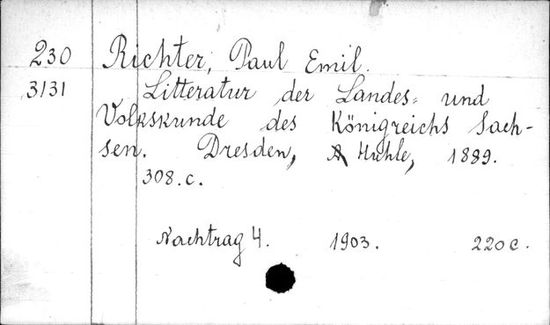 230 Richter, Paul Emil.
3131 Litteratur der Landes= und
Volkskunde des Königreichs Sach-
sen. Dresden, A Huhle, 1889.
308.c.
Nachtrag 4. 1903. 220c.